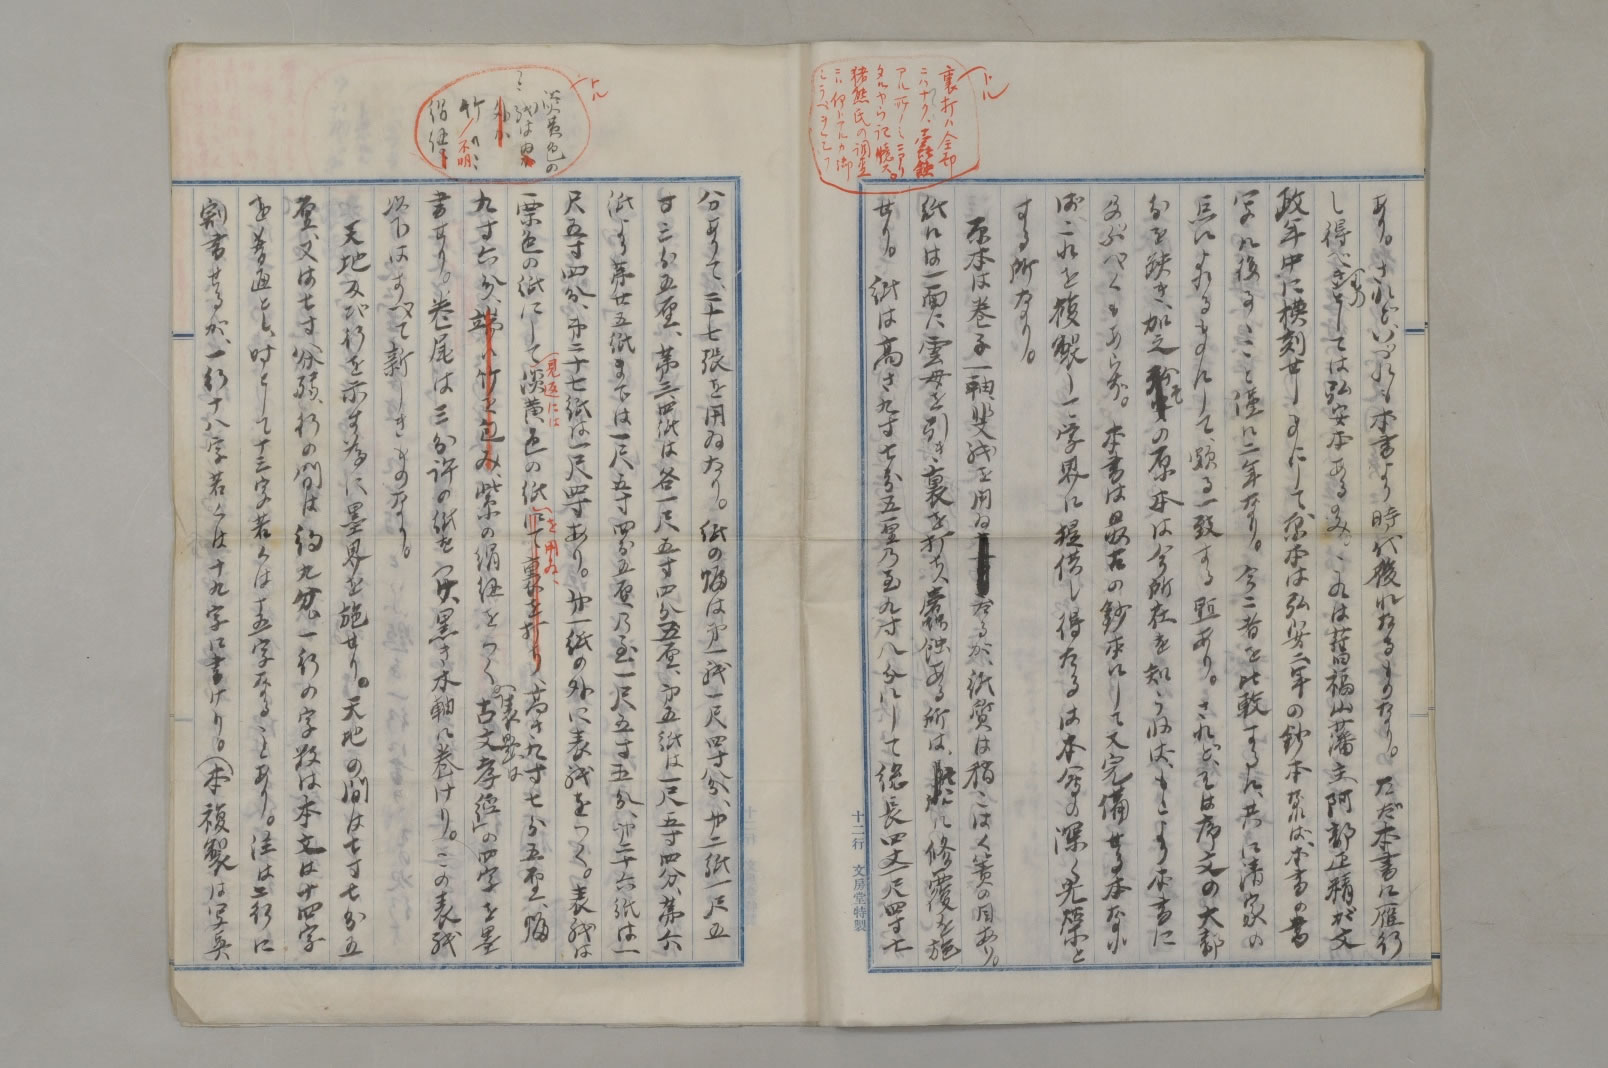 トル
裏打ハ全部
ニハナク、蠹蝕
アル所ノミニアリ
タルヤウ記憶ス。
猪熊氏の調査
あり。されどいづれも本書より時代後れたるものなり。ただ本書に雁行
し得べきものとしては弘安本あるのみ。これは舊福山藩主阿部正精が文
政年中に模刻せしものにして原本は弘安二年の鈔本なれば、本書の書
写に後るること僅に二年なり。今二者を比較するに、共に清家の
点によれるものにして、頗る一致する點あり。されど、そは序文の大部
分を缺き、加之その原本は今所在を知らざれば、もとより本書に
及ぶべくもあらず。本書は最古の鈔本にして又完備せる本なれ
ば、これを複製し一に学界に提供し得たるは本会の深く光榮と
する所なり。
原本は巻子一軸、斐紙を用ゐたるが、紙質は稍こはく簀の目あり。
紙には一面に雲母を引き裏を打ち、蠹蝕ある所は、に修覆を施
せり。紙は高さ九寸七分五厘乃至九寸八分にして総長四丈一尺四寸七
十二行 文房堂特製
トル
淡黄色の
紙は
竹カ
不明
絹紐
分ありて、二十七張を用ゐたり。紙の幅は第一紙一尺四寸六分、第二紙一尺五
寸三分五厘、第三四紙は各一尺五寸四分五厘、第五紙は一尺五寸四分、第六
紙より第廿五紙までは一尺五寸四分五厘乃至一尺五寸五分、第二十六紙は一
尺五寸四分、第二十七紙は一尺四寸あり。第一紙の外に表紙をつく。表紙は
栗色の紙にして見返には淡黄色の紙を用ゐ、にて裏を打り、高さ九寸七分五厘、幅
九寸六分、端に竹を包み紫の絹紐をつく表題は古文孝經の四字を墨
書せり。巻尾は三分許の紙を余し黒き木軸に巻けり。この表紙
以下はすべて新しきものなり。
天地及び行を示す為に墨界を施せり。天地の間は七寸七分五
厘、又は七寸八分弱、行の間は約九分、一行の字数は本文は十四字
を普通とし、時として十三字若くは十五字なることあり。注は二行に
割書せるが、一行十八字若くは十九字に書けり。(本複製は写真